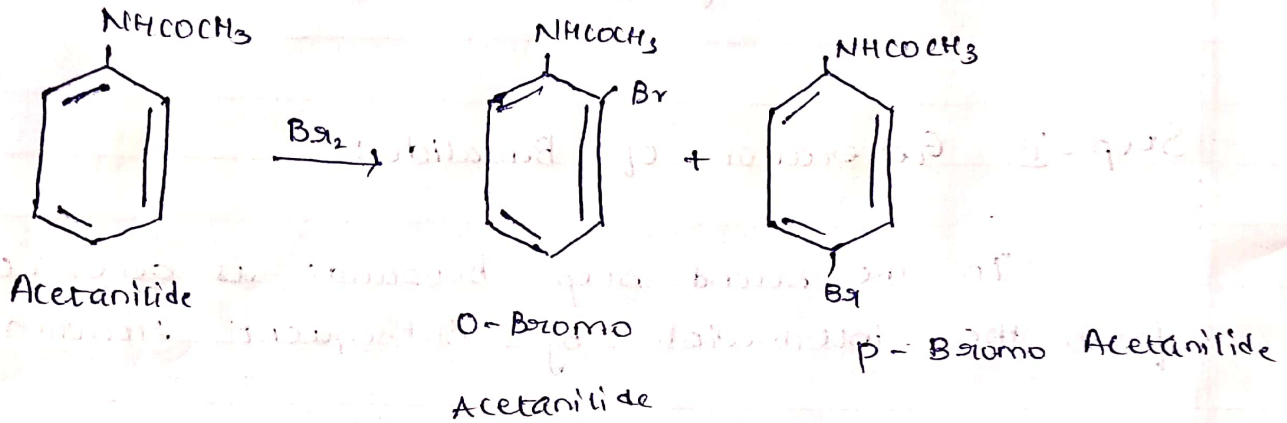 NHCOCH3
NHCOCH3
NHCOCH3
Br
Br2
+
Br
Acetanilide
O-Bromo
Acetanilide
p-Bromo Acetanilide